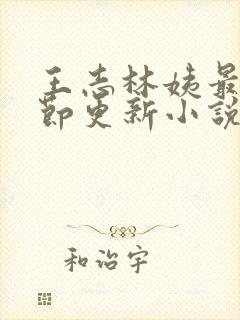 王志林姨最
節更新小說
和治宇